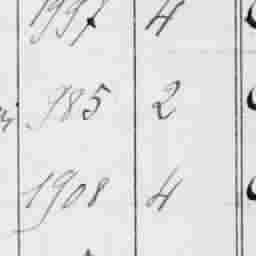 1997 4
985 2
1908 4